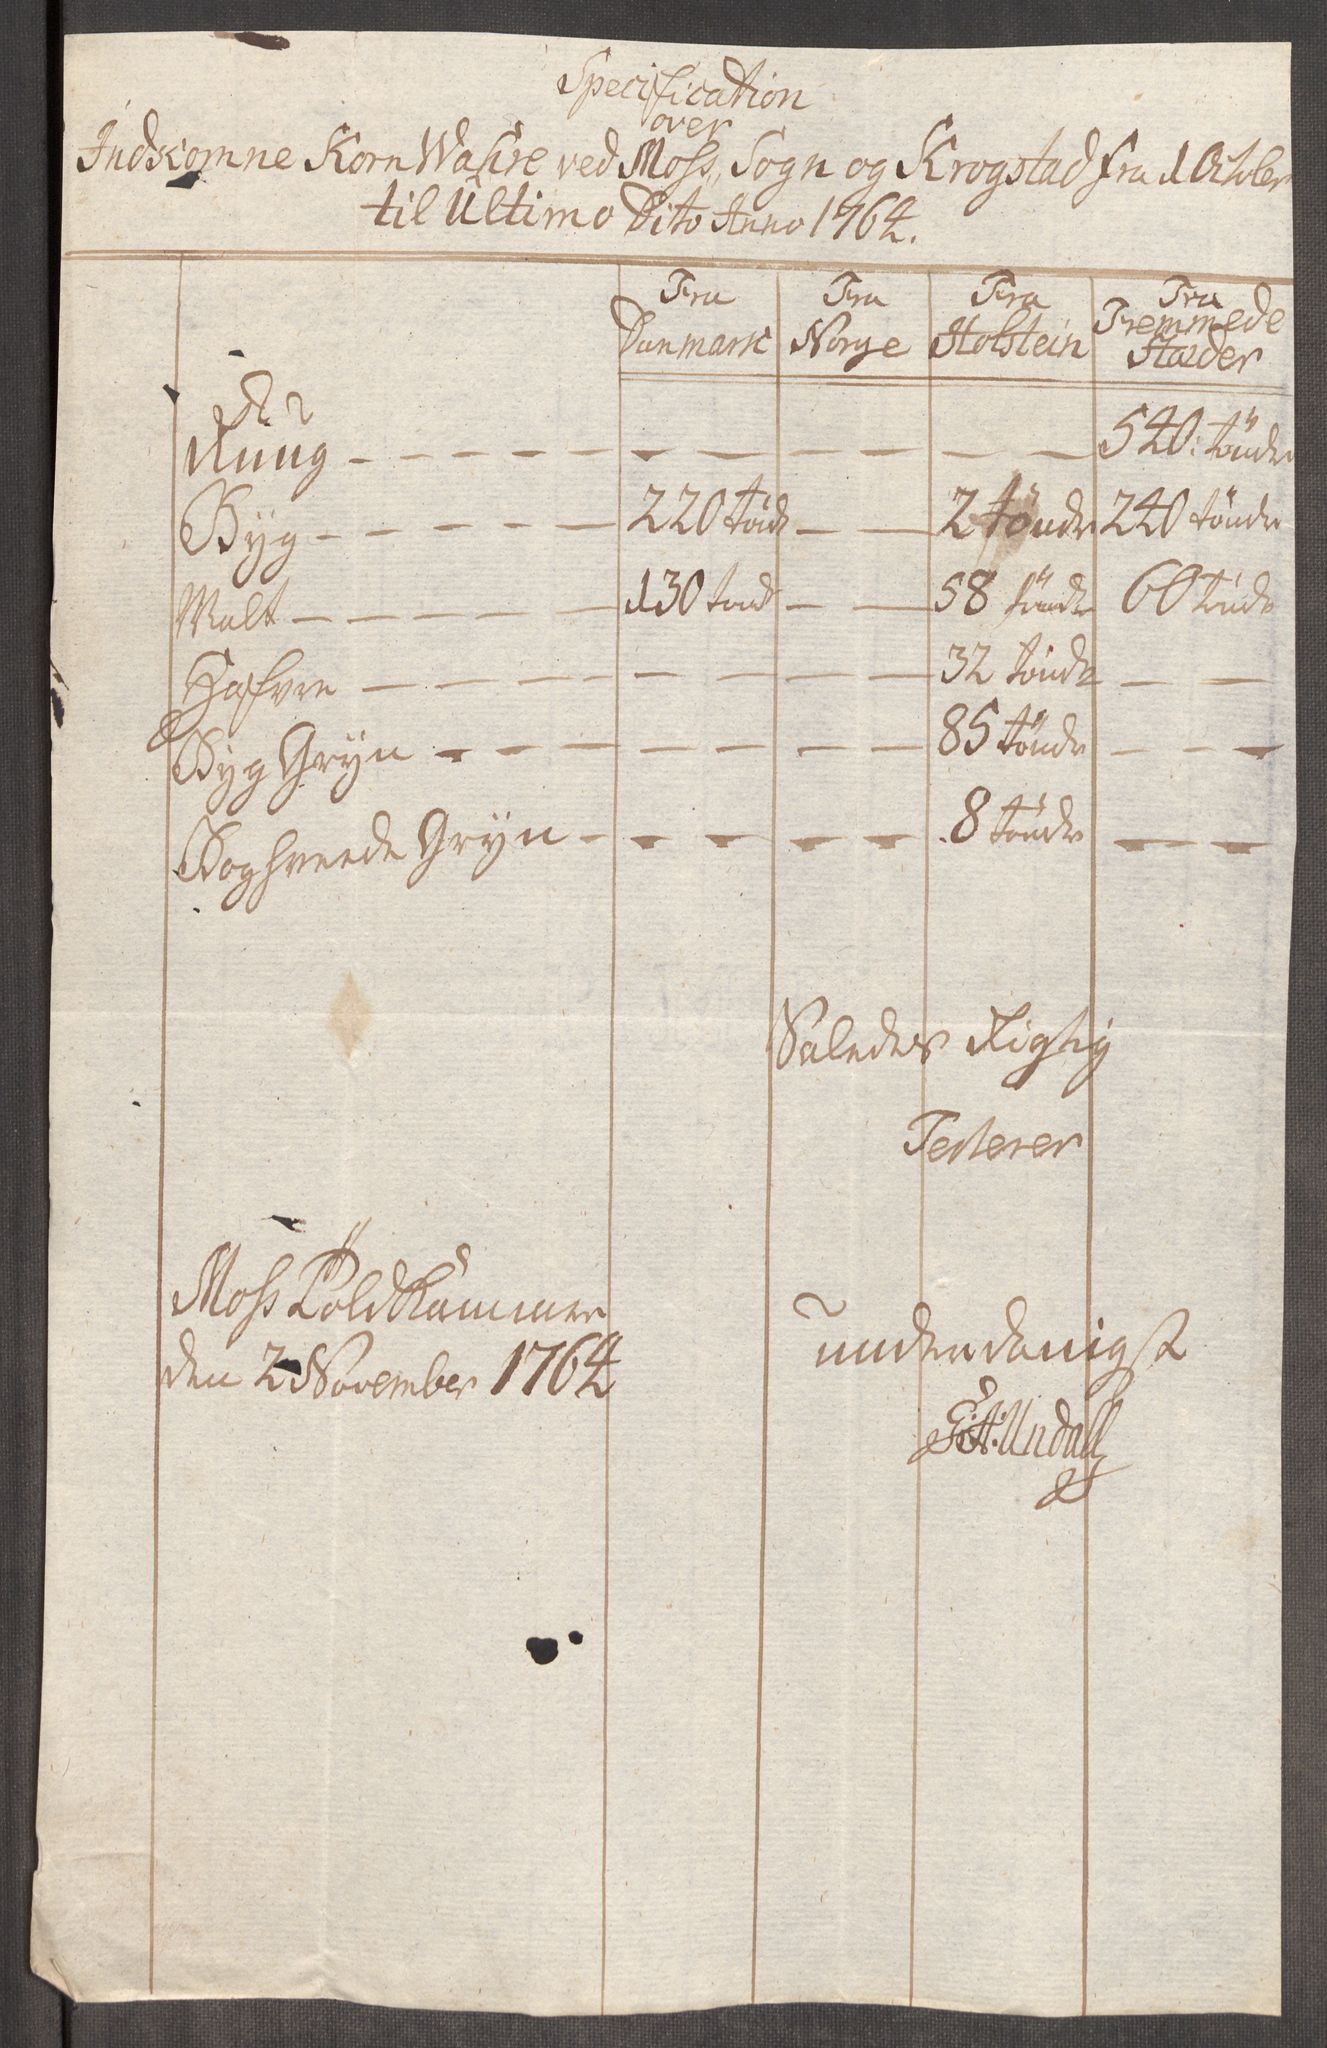 Specification
over
Indkomne Korn Wahre ved Moss, Sogn og Krogstad fra 1 October
til Ultimo Dito Anno 1764.
Fra Danmark Fra Norge Fra Holstein Fra Fremmede Stæder
Ruug - - - - - - - - - - 540: tönder
Byg - - - - - 220 tönder - - 2 tönder 240 tönder
Malt - - - - - 130 tönder - - 58 tönder 60 tönder
Hafvre - - - - - - - - 32 tönder - -
Byg Gryn - - - - - - - - 85 tönder - - -
Boghveede Gryn - - - - - - 8 tönder - - -
Saaledes Rigtig
Testerer
Moss Toldkammer
den 2 November 1764
underdanigst
Undall